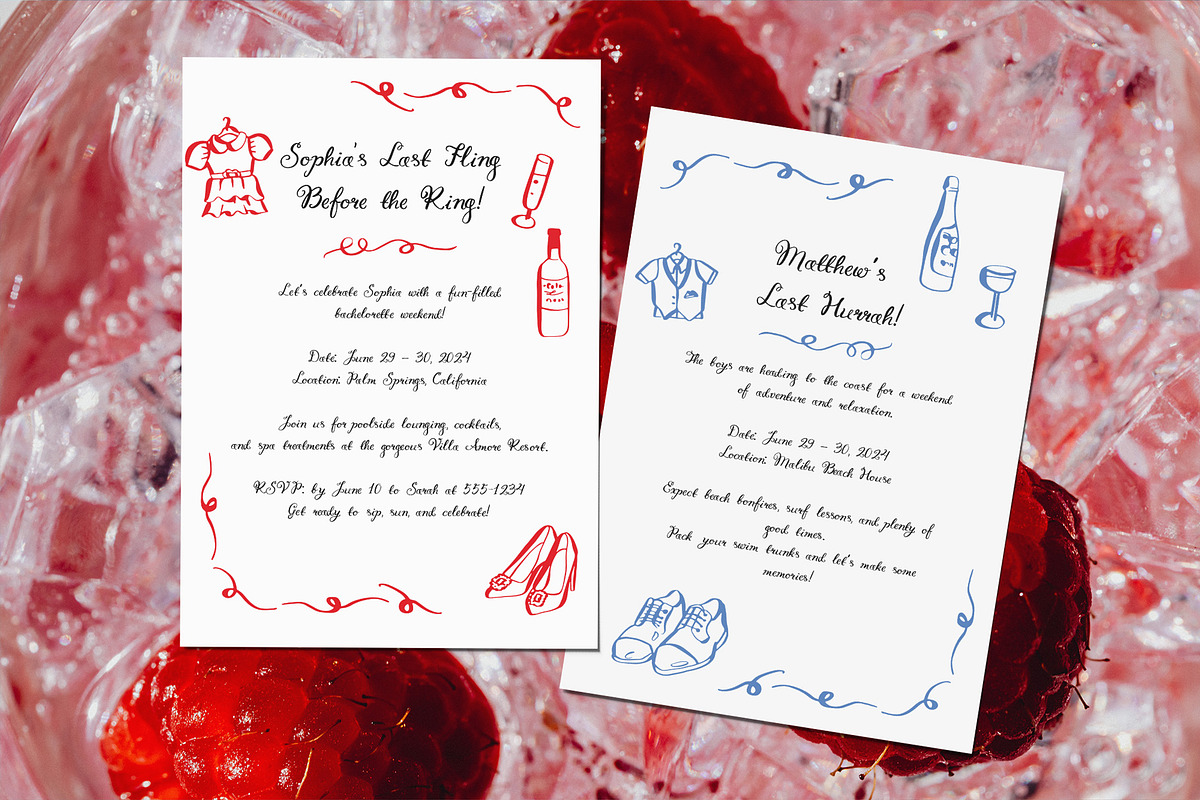 Sophia's Last Fling
Before the Ring!
Let's celebrate Sophia with a fun-filled
bachelorette weekend!
Date: June 29 - 30, 2024
Location: Palm Springs, California
Join us for poolside lounging, cocktails,
and spa treatments at the gorgeous Villa Amore Resort.
RSVP: by June 10 to Sarah at 555-1234
Get ready to sip, sun, and celebrate!
Matthew's
Last Hurrah!
The boys are heading to the coast for a weekend
of adventure and relaxation.
Date: June 29 - 30, 2024
Location: Malibu Beach House
Expect beach bonfires, surf lessons, and plenty of
good times.
Pack your swim trunks and let's make some
memories!